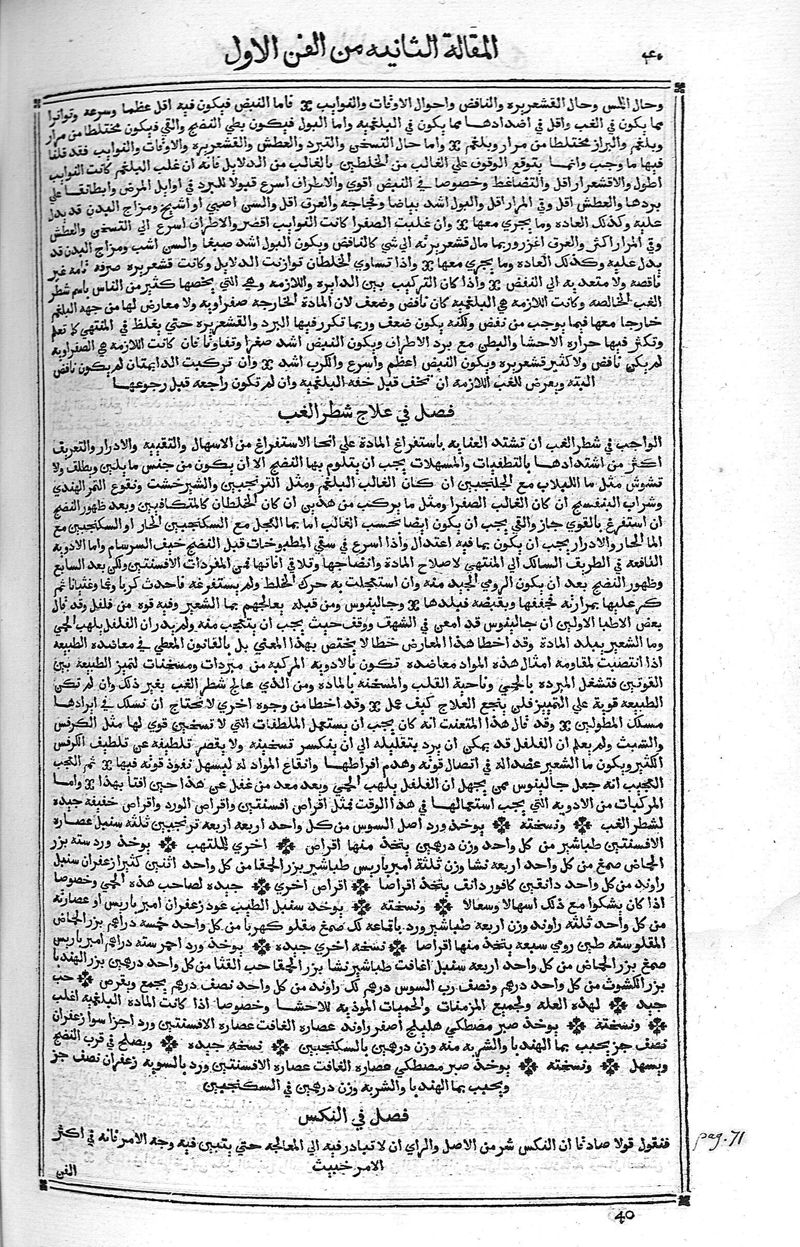 المقالة الثانيه من الفن الاول
٤٠
وحال الملمس وحال القشعريره والنافض واحوال الاوقات والنوايب فاما النبض فيكون فيه اقل عظما وسرعه وتواترا
مما يكون في الغب واقل في اضدادها مما يكون في البلغميه واما البول فيكون بطي النضج والقي فيكون مختلطا من مرار
وبلغم والبراز مختلطا من مرار وبلغم واما حال التسخن والتبرد والعطش والقشعريره والاوقات والنوايب فقد قلنا
فيها ما وجب وانما يتوقع الوقوف علي الغالب من الخلطين بالغالب من الدلايل فانه ان غلب البلغم كانت النوايب
اطول والاقشعرار اقل والتضاغط وخصوصا في النبض اقوي والاطراف اسرع قبولا للبرد في اوايل المرض وابطا نقا علي
بردها والعطش اقل وفي المرار اقل والبول اشد بياضا وفجاجه والعرق اقل والسن اصبي او اشيخ ومزاج البدن قد يدل
عليه وكذلك العاده وما يجري معها وان غلبت الصفرا كانت النوايب اقصر والاطراف اسرع الي التسخن والعطش
وفي المرار اكثر والعرق اغزر وربما مال قشعريرته الي شي كالنافض ويكون البول اشد صبغا والسن اشب ومزاج البدن قد
يدل عليه وكذلك العاده وما يجري معها واذا تساوي الخلطان توازنت الدلايل وكانت قشعريره صرفه تامه غير
ناقصه ولا متعديه الي النفض واذا كان التركيب بين الدايره واللازمه وهي التي يخصها كثير من الناس باسم شطر
الغب الخالصه وكانت اللازمه هي البلغميه كان نافض وضعف لان المادة الخارجه صفراويه ولا معارض لها من جهه البلغم
خارجا معها فيما يوجب من نفض ولكنه يكون ضعف وربما تكرر فيها البرد والقشعريرة حتي يغلظ في المنتهي كما تعلم
وتكثر فيها حراره الاحشا والبطي مع برد الاطراف ويكون النبض اشد صغرا وتفاوتا فان كانت اللازمه هي الصفراويه
لم يكن نافض ولا كثير قشعريره ويكون النبض اعظم واسرع والكرب اشد وان تركبت الدايمتان لم يكون نافض
البته ويعرض للغب اللازمه ان تخف قبل خفه البلغميه وان لم تكون راجعه قبل رجوعها
فصل في علاج شطر الغب
الواجب في شطر الغب ان تشتد العنايه باستفراغ المادة علي انحا الاستفراغ من الاسهال والتقييه والادرار والتعريف
اكثر من اشتدادها بالتطفيات والمسهلات يجب ان يتلوم بها النضج الا ان يكون من جنس ما يلين ويطلف ولا
تشوش مثل ما اللبلاب مع الجلنجبين ان كان الغالب البلغم ومثل الترنجبين والشيرخشت ونقوع التمر الهندي
وشراب البنفسج ان كان الغالب الصفرا ومثل ما يركب من هذين ان كان الخلطان كالمتكافيين وبعد ظهور النضج
ان استفرغ بالقوي جاز والقي يجب ان يكون ايضا بحسب الغالب اما بما الفجل مع السكنجبين الحار او السكنجبين مع
الما الحار والادرار يجب ان يكون بما فيه اعتدال واذا اسرع في سقي المطبوخات قبل النضج خيف السرسام واما الادويه
النافعه في الطريف السالك الي المنتهي لاصلاح المادة وانضاجها وتلافي افاتها فمن المفردات الافسنتين ولكن بعد السابع
وظهور النضج بعد ان يكون الرومي الجيد منه وان استعجلت به حرك الخلط ولم يستفرغه فاحدث كربا وغما وغثيانا ثم
كر عليها بمرارته فجففها وبقبضه فبلدها وجالينوس ومن قبله يعالجهم بما الشعير وفيه قوه من فلفل وقد قال
بعض الاطبا الاولين ان جالينوس قد امعن في الشهف ووقف حيث يجب ان يتعجب منه ولم يدر ان الفلفل يلهب الحمي
وما الشعير يبلد المادة وقد اخطا هذا المعارض خطا لا يختص بهذا المعني بل بالقانون المعطي في معاضده الطبيعه
اذا انتصبت لمقاومه امثال هذه المواد معاضده تكون بالادويه المركبه من مبردات ومسخنات لتميز الطبيعه بين
القوتين فتشغل المبرده بالحمي وناحية القلب والمسخنه بالمادة ومن الذي عالج شطر الغب بغير ذلك وان لم تكن
الطبيعه قوية علي التمييز فلن ينجع العلاج كيف عمل وقد اخطا من وجوه اخري لا نحتاج ان نسلك في ايرادها
مسلك المطولين وقد قال هذا المتعنت انه كان يجب ان يستعمل الملطفات التي لا تسخنين قوي لها مثل الكرفس
والشبث ولم يعلم ان الفلفل قد يمكن ان يرد بتقليله الي ان ينكسر تسخينه ولا يقصر تلطيفه عن تلطيف الكرفس
الكثير ويكون ما الشعير عضدا له في اتصال قوته وهدم افراطها وانقاع المواد له ليسهل نفوذ قوته فيها ثم العجب
العجيب انه جعل جالينوس ممن يجهل ان الفلفل يلهب الحمي ويعد معد من غفل عن هذا حين افتا بهذا واما
المركبات من الادويه التي يجب استعمالها في هذا الوقت فمثل اقراص افسنتين واقراص الورد واقراص خفيفه جيده
لشطر الغب ونسخته يوخذ ورد اصل السوس من كل واحد اربعه اربعه ترنجبين ثلثه سنبل عصاره
الافسنتين طباشير من كل واحد وزن درهمين يتخذ منها اقراص اخري للملتهب يوخذ ورد سته بزر
الحماض صمغ من كل واحد اربعه نشا وزن ثلثة اميرباريس طباشير بزر الحمقا من كل واحد اثنين كثيرا زعفران سنبل
راوند من كل واحد دانقين كافور دانق يتخذ اقراصا اقراص اخري جيده لصاحب هذه الحمي وخصوصا
اذا كان يشكوا مع ذلك اسهالا وسعالا ونسخته يوخذ سنبل الطيب عود زعفران اميرباريس او عصارته
من كل واحد ثلثه راوند وزن اربعه طباشير ورد باقماعه لك صمغ مقلو كهربا من كل واحد خمسه دراهم بزر الحماض
المقلو سته طين رومي سبعه يتخذ منها اقراصا نسخه اخري جيده يوخذ ورد احمر سته دراهم اميرباريس
صمغ بزر الحماض من كل واحد اربعه سنبل اغافت طباشير نشا بزر الحمقا حب القثا من كل واحد درهمين بزر الهندبا
بزر الكشوث من كل واحد درهم ونصف رب السوس درهم لك راوند من كل واحد نصف درهم يجمع ويقرص حب
جيد لهذه العله ولجميع المزمنات والحميات الموذيه للاحشا وخصوصا اذا كانت المادة البلغميه اغلب
ونسخته يوخذ صبر مصطكي هليلج اصفر راوند عصاره الغافت عصاره الافسنتين ورد اجزا سوا زعفران
نصف جز يحبب بما الهندبا والشربه منه وزن درهمين بالسكنجبين نسخه جيده ويصلح في قرب النضج
ويسهل ونسخته يوخذ صبر مصطكي عصاره الغافت عصاره الافسنتين ورد بالسويه زعفران نصف جز
ويحبب بما الهندبا والشربه وزن درهمين في السكنجبين
فصل في النكس
فنقول قولا صادقا ان النكس شر من الاصل والراي ان لا تبادر فيه الي المعالجه حتي يتبين فيه وجه الامر فانه في اكثر
الامر خبيث
الفن
pag. 71
40